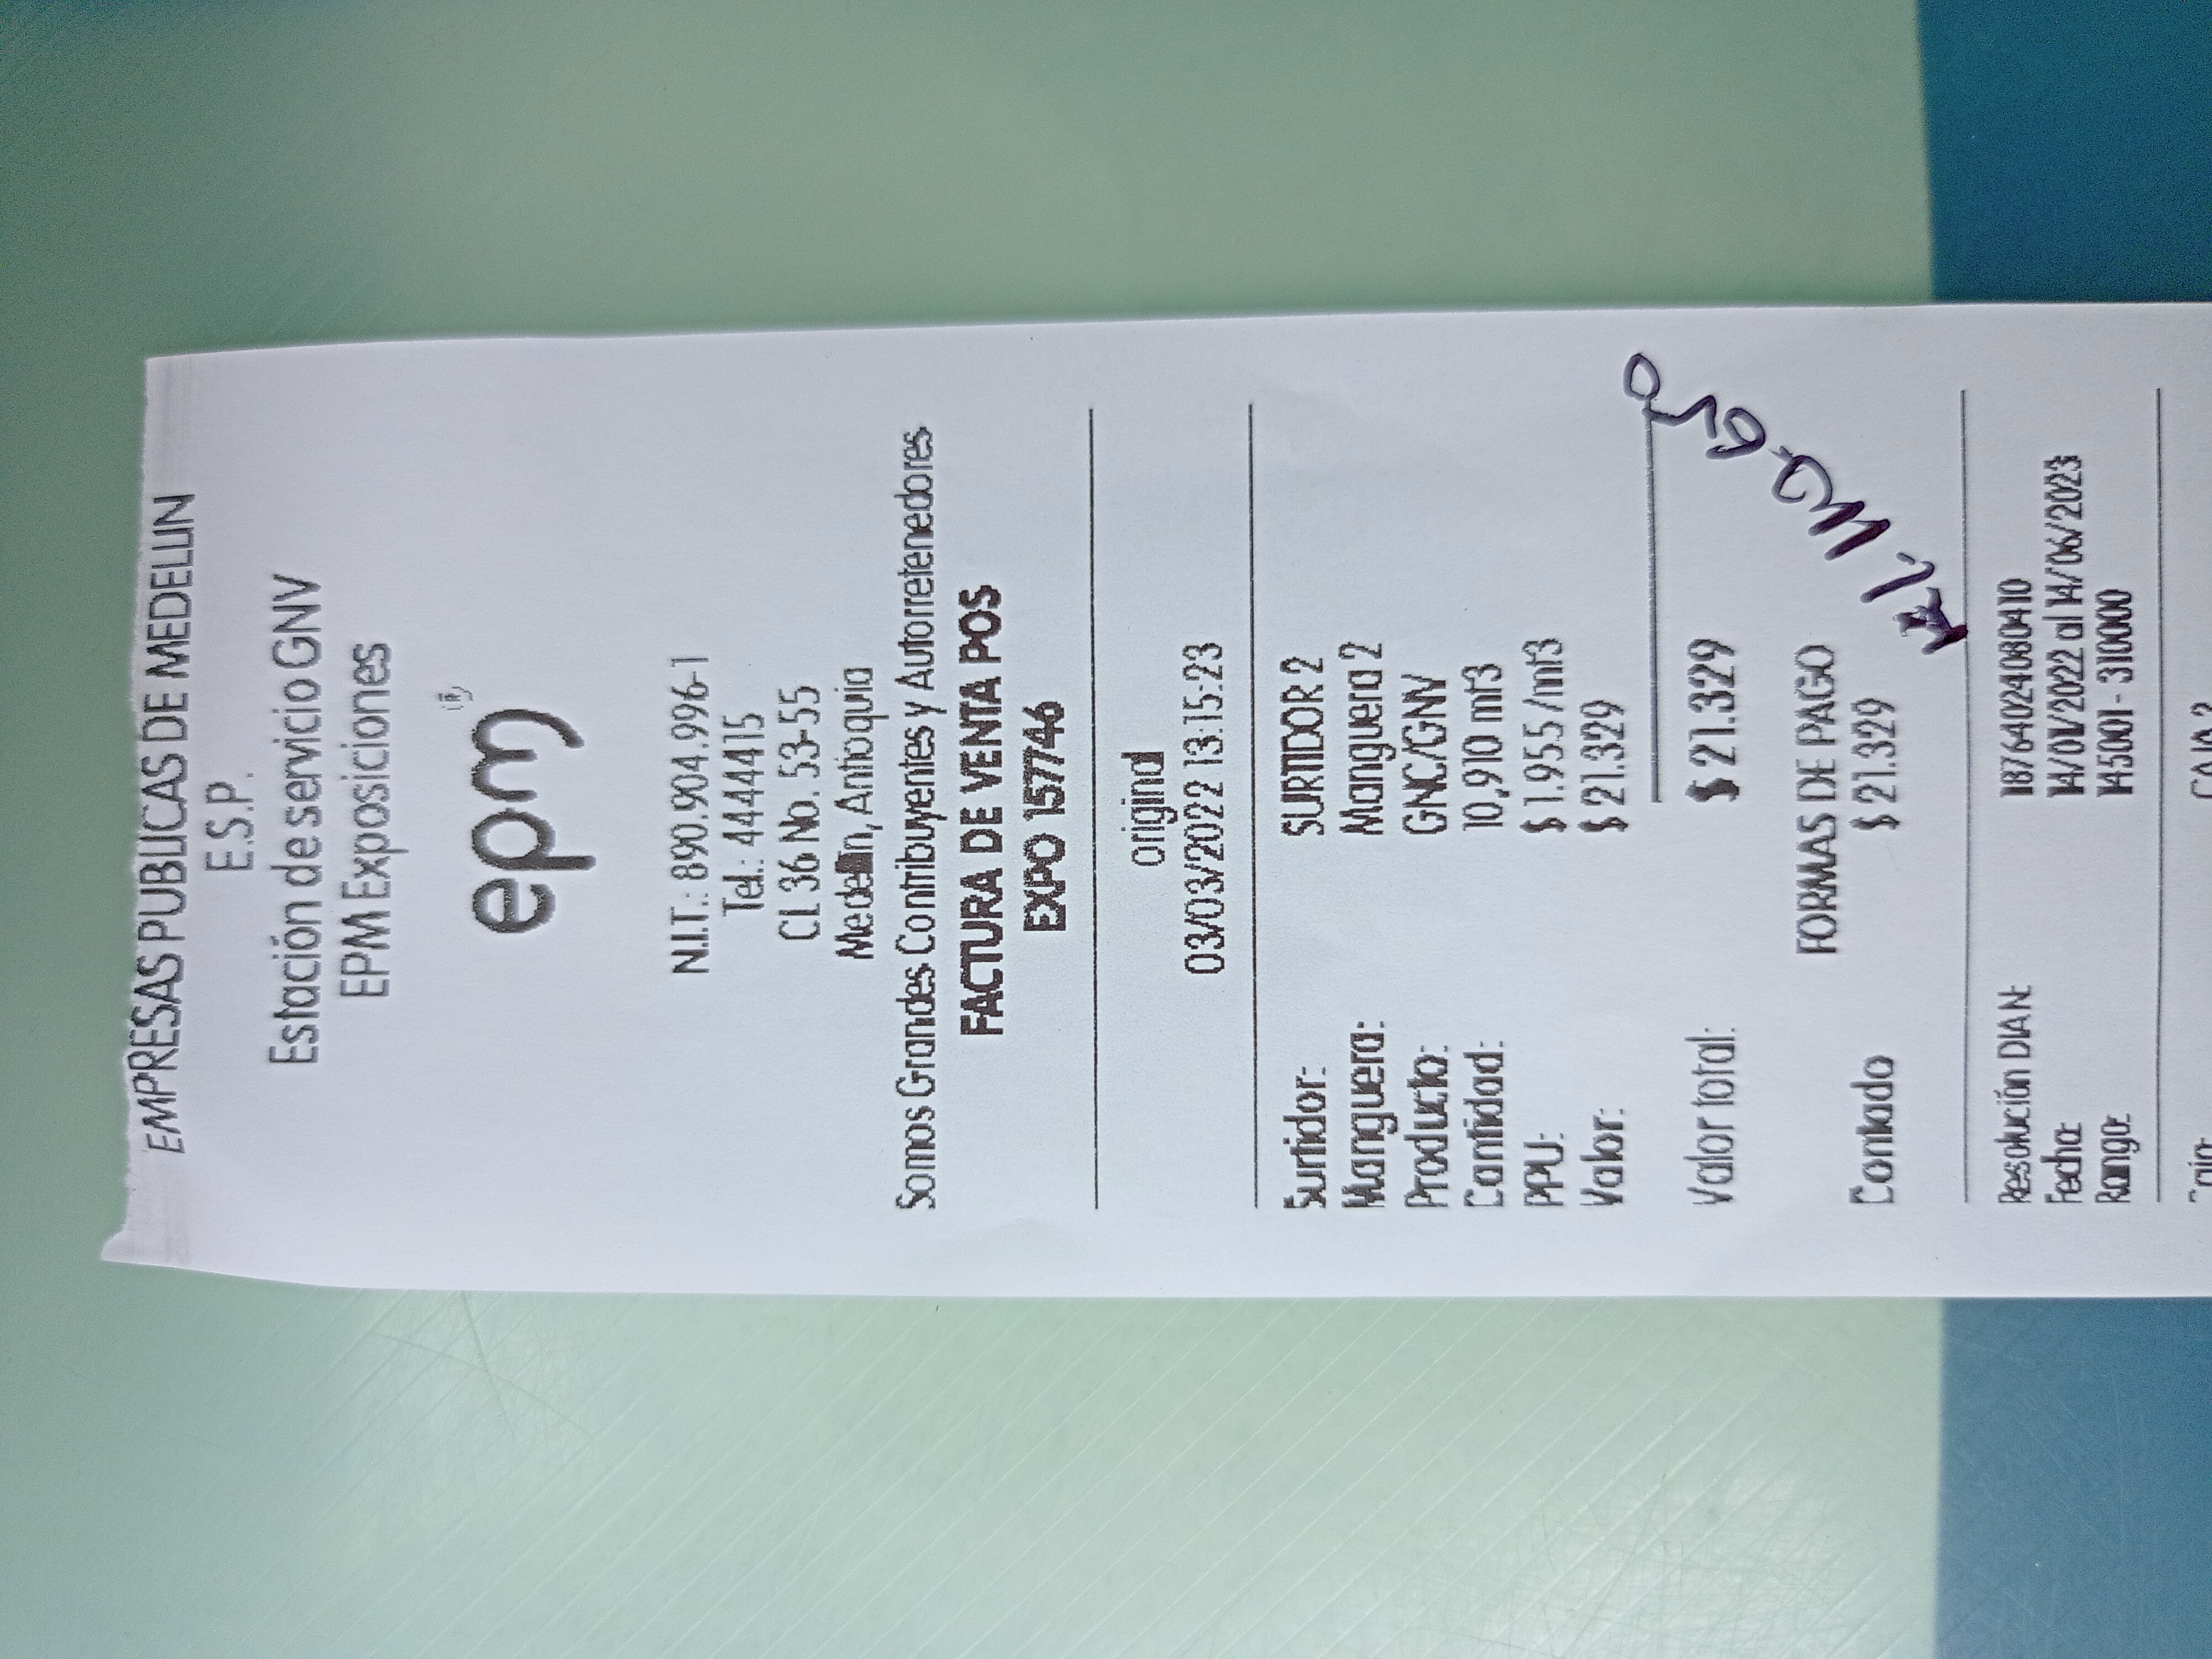 EMPRESAS PUBLICAS DE MEDELLIN
E.S.P.
Estación de servicio GNV
EPM Exposiciones
epm
N.I.T.: 890.904.996-1
Tel.: 4444415
CL 36 No. 53-55
Medellin, Antioquia
Somos Grandes Contribuyentes y Autorretenedores
FACTURA DE VENTA POS
EXPO 157746
original
03/03/2022 13:15:23
Surtidor: SURTIDOR 2
Manguera: Manguera 2
Producto: GNC/GNV
Cantidad: 10,910 mt3
PPU: $ 1.955 /mt3
Valor: $ 21.329
Valor total: $ 21.329
FORMAS DE PAGO
Contado $ 21.329
Resolución DIAN: 18764024080410
Fecha: 14/01/2022 al 14/06/2023
Rango: 145001 - 310000